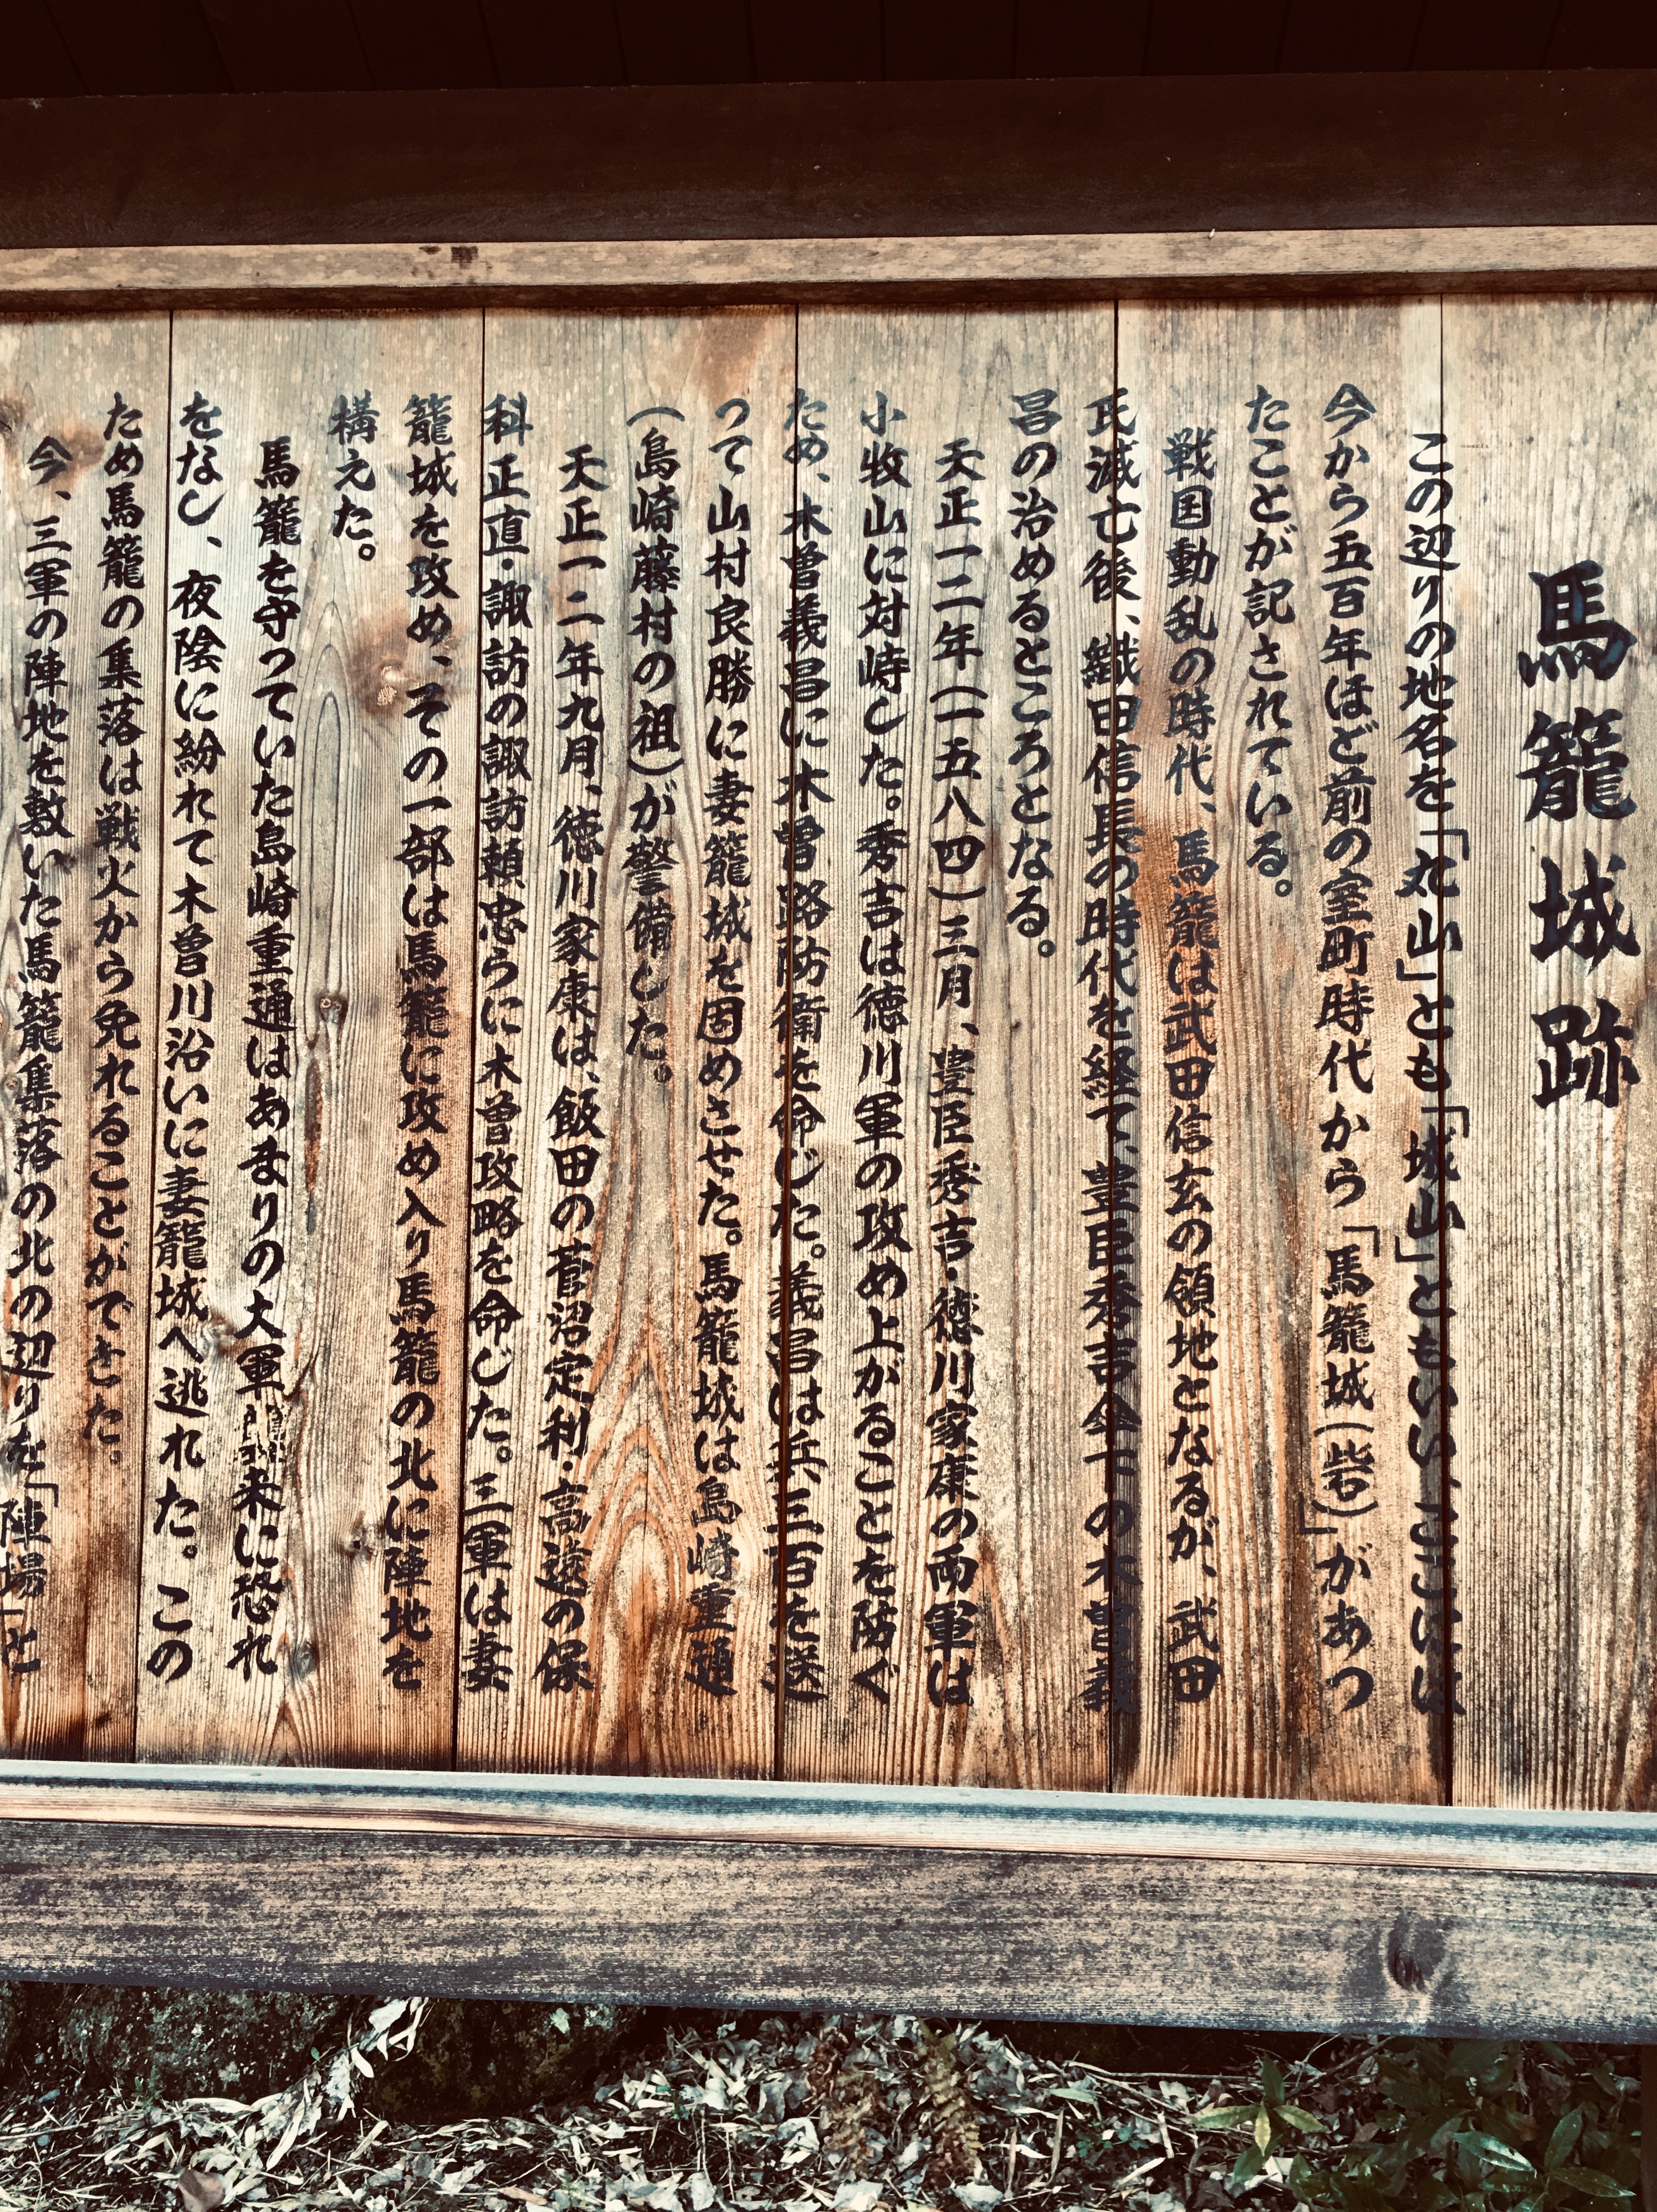 馬籠城跡
この辺りの地名を「丸山」とも「城山」ともいい、ここには
今から五百年ほど前の室町時代から「馬籠城(砦)」があっ
たことが記されている。
戦国動乱の時代、馬籠は武田信玄の領地となるが、武田
氏滅亡後、織田信長の時代を経て、豊臣秀吉傘下の木曽義
昌の治めるところとなる。
天正一二年(一五八四)三月、豊臣秀吉・徳川家康の両軍は
小牧山に対峙した。秀吉は徳川軍の攻め上がることを防ぐ
ため、木曽義昌に木曽路防衛を命じた。義昌は兵三百を送
って山村良勝に妻籠城を固めさせた。馬籠城は島崎重通
(島崎藤村の祖)が警備した。
天正一二年九月、徳川家康は、飯田の菅沼定利・高遠の保
科正直・諏訪の諏訪頼忠らに木曽攻略を命じた。三軍は妻
籠城を攻め、その一部は馬籠に攻め入り馬籠の北に陣地を
構えた。
馬籠を守っていた島崎重通はあまりの大軍襲来に恐れ
をなし、夜陰に紛れて木曽川沿いに妻籠城へ逃れた。この
ため馬籠の集落は戦火から免れることができた。
今、三軍の陣地を敷いた馬籠集落の北の辺りを「陣場」と